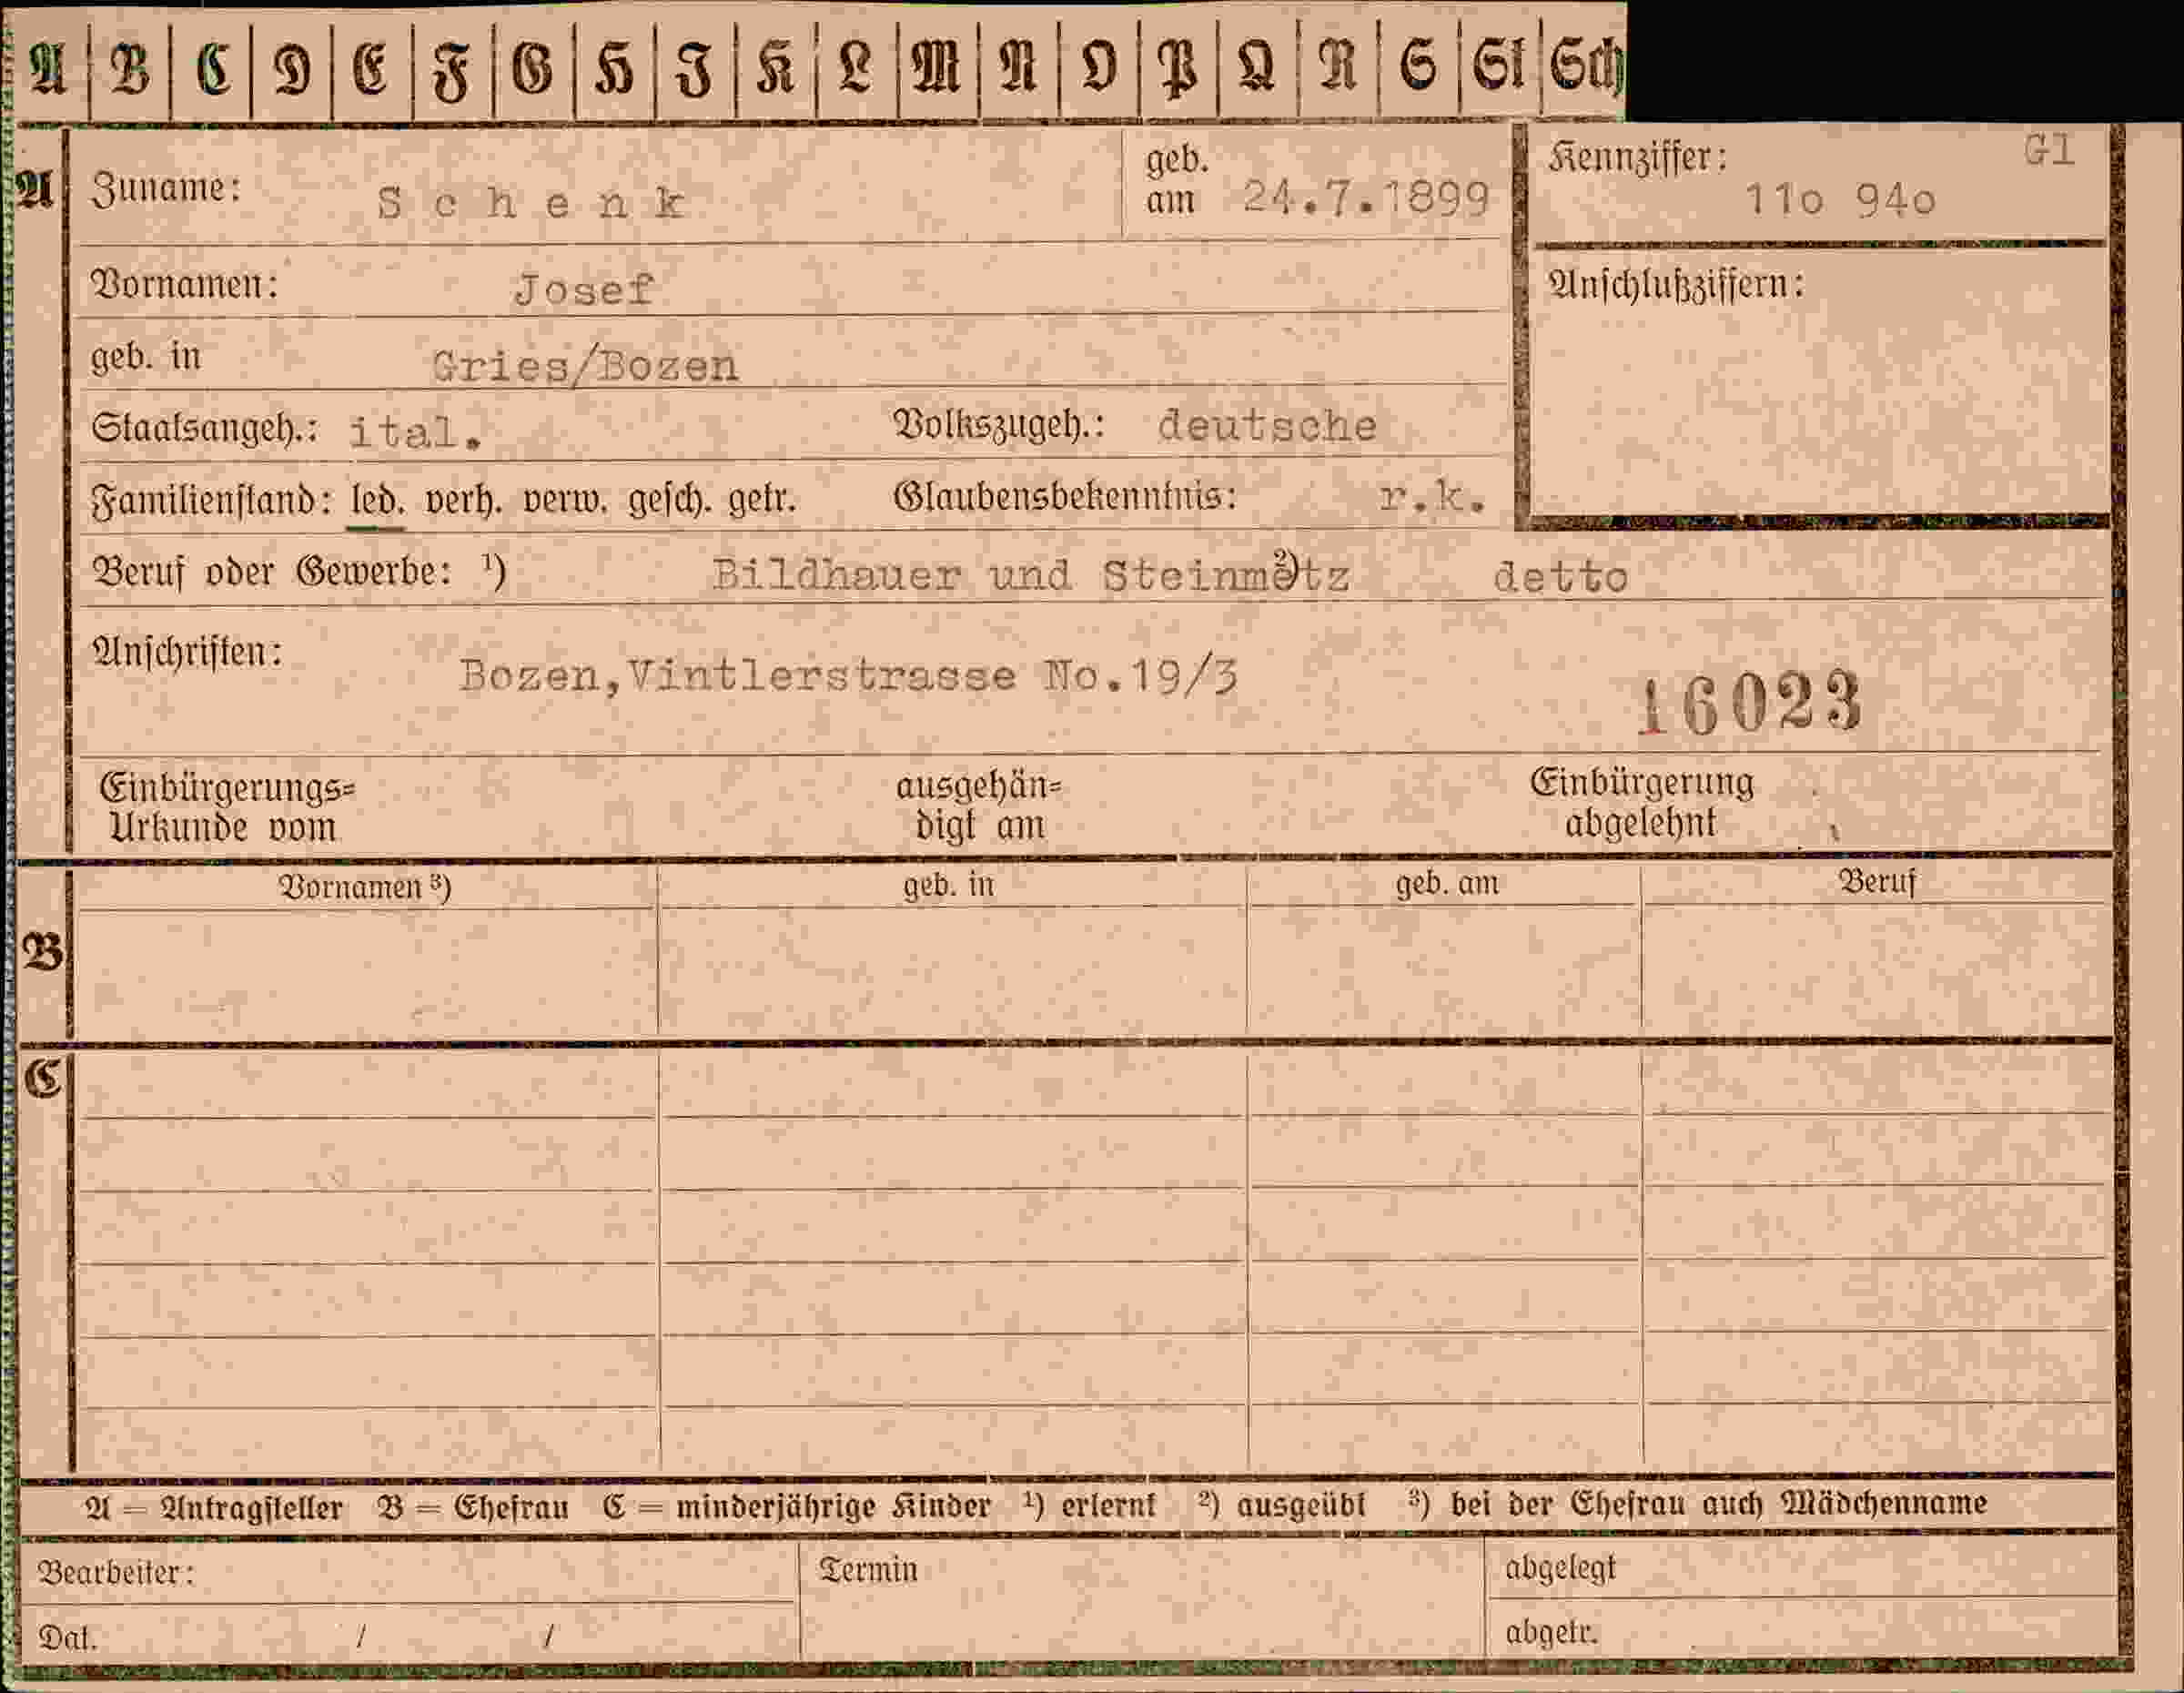 A B C D E F G H I K L M N O P Q R S St Sch
A Zuname: Schenk geb. am 24.7.1899 Kennziffer: G1 11o 94o
Vornamen: Josef Anschlußziffern:
geb. in Gries/Bozen
Staatsangeh.: ital. Volkszugeh.: deutsche
Familienstand: led. verh. verw. gesch. getr. Glaubensbekenntnis: r.k.
Beruf oder Gewerbe: ¹) Bildhauer und Steinmetz ²) detto
Anschriften: Bozen,Vintlerstrasse No.19/3
16023
Einbürgerungs= ausgehän= Einbürgerung
Urkunde vom digt am abgelehnt
Vornamen ³) geb. in geb. am Beruf
B
C
A = Antragsteller B = Ehefrau C = minderjährige Kinder ¹) erlernt ²) ausgeübt ³) bei der Ehefrau auch Mädchenname
Bearbeiter: Termin abgelegt
Dat. / / abgetr.